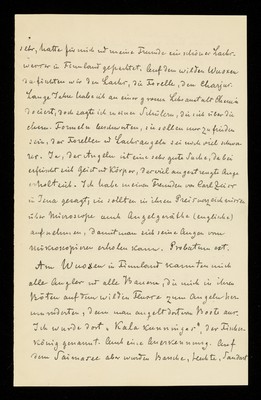 sehr, hatte für mich und meine Freunde ein schönes Lachs-
wasser in Finnland gepachtet. Auf dem wilden Wuoxen
da fischten wir den Lachs, die Forelle, den Charjus.
Lange Jahre habe ich an einer grossen Lehranstalt Chemie
dociert, doch sagte ich meinen Schülern, die sich über die
chem. Formeln beschwerten, sie sollen nur zufrieden
sein, das Forellen und Lachsangeln sei noch viel schwe-
rer. Ja, das Angeln ist eine sehr gute Sache, dabei
erfrischt sich Geist und Körper, das viel angestrengte Auge
erholt sich. Ich habe meinen Freunden von Carl Zeiss
in Jena gesagt, sie sollten in ihren Preisverzeichnissen
über Microscope auch Angelgeräthe (englische)
aufnehmen, damit man sich seine Augen vom
mikroskopieren erholen kann. Probatum est.
Am Wuoxen in Finnland kannten mich
alle Angler und alle Bauern, die mich in ihren
Böten auf dem wilden Flusse zum Angeln her-
umruderten, denn man angelt dort vom Boote aus.
Ich wurde dort "Kala kunningas", der Fischer-
könig genannt. Auch eine Anerkennung. Auf
dem Saimasee aber wurden Barsche, Hechte, Sandart